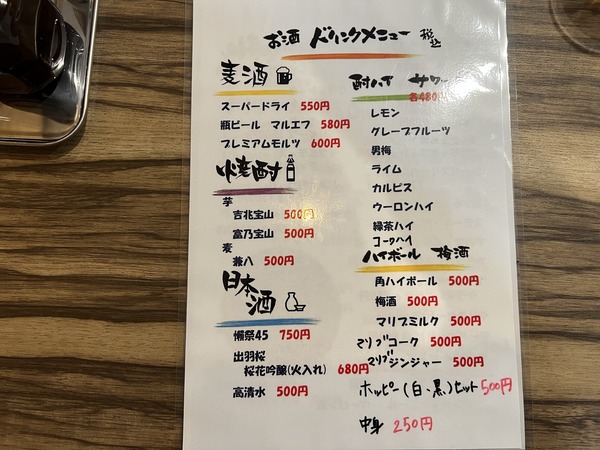 お酒 ドリンクメニュー 税込
麦酒
スーパードライ 550円
瓶ビール マルエフ 580円
プレミアムモルツ 600円
焼酎
芋
吉兆宝山 500円
富乃宝山 500円
麦
兼八 500円
日本酒
獺祭45 750円
出羽桜
桜花吟醸(火入れ) 680円
高清水 500円
酎ハイ サワー
各480円
レモン
グレープフルーツ
男梅
ライム
カルピス
ウーロンハイ
緑茶ハイ
コークハイ
ハイボール 梅酒
角ハイボール 500円
梅酒 500円
マリブミルク 500円
マリブコーク 500円
マリブジンジャー 500円
ホッピー(白、黒)セット 500円
中身 250円